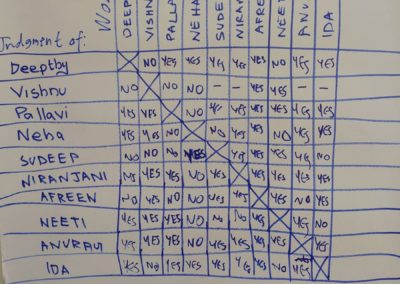 Wo
DEEP VISHN PALLA NEHA SUDE NIRAN AFREE NEET ANU IDA
Judgment of:
Deeptby NO YES YES YES YES YES NO YES YES
Vishnu NO NO NO – – YES YES – –
Pallavi YES YES NO YES YES YES YES YES
Neha YES YES NO NO YES YES NO YES YES
SUDEEP NO NO NO YES YES YES YES NO
NIRANJANI YES YES NO YES YES YES YES YES
AFREEN NO YES YES NO YES YES YES NO YES
NEETI YES YES YES NO NO NO YES YES YES
ANURAG YES YES YES NO YES YES YES YES YES
IDA YES NO YES YES YES YES YES NO YES